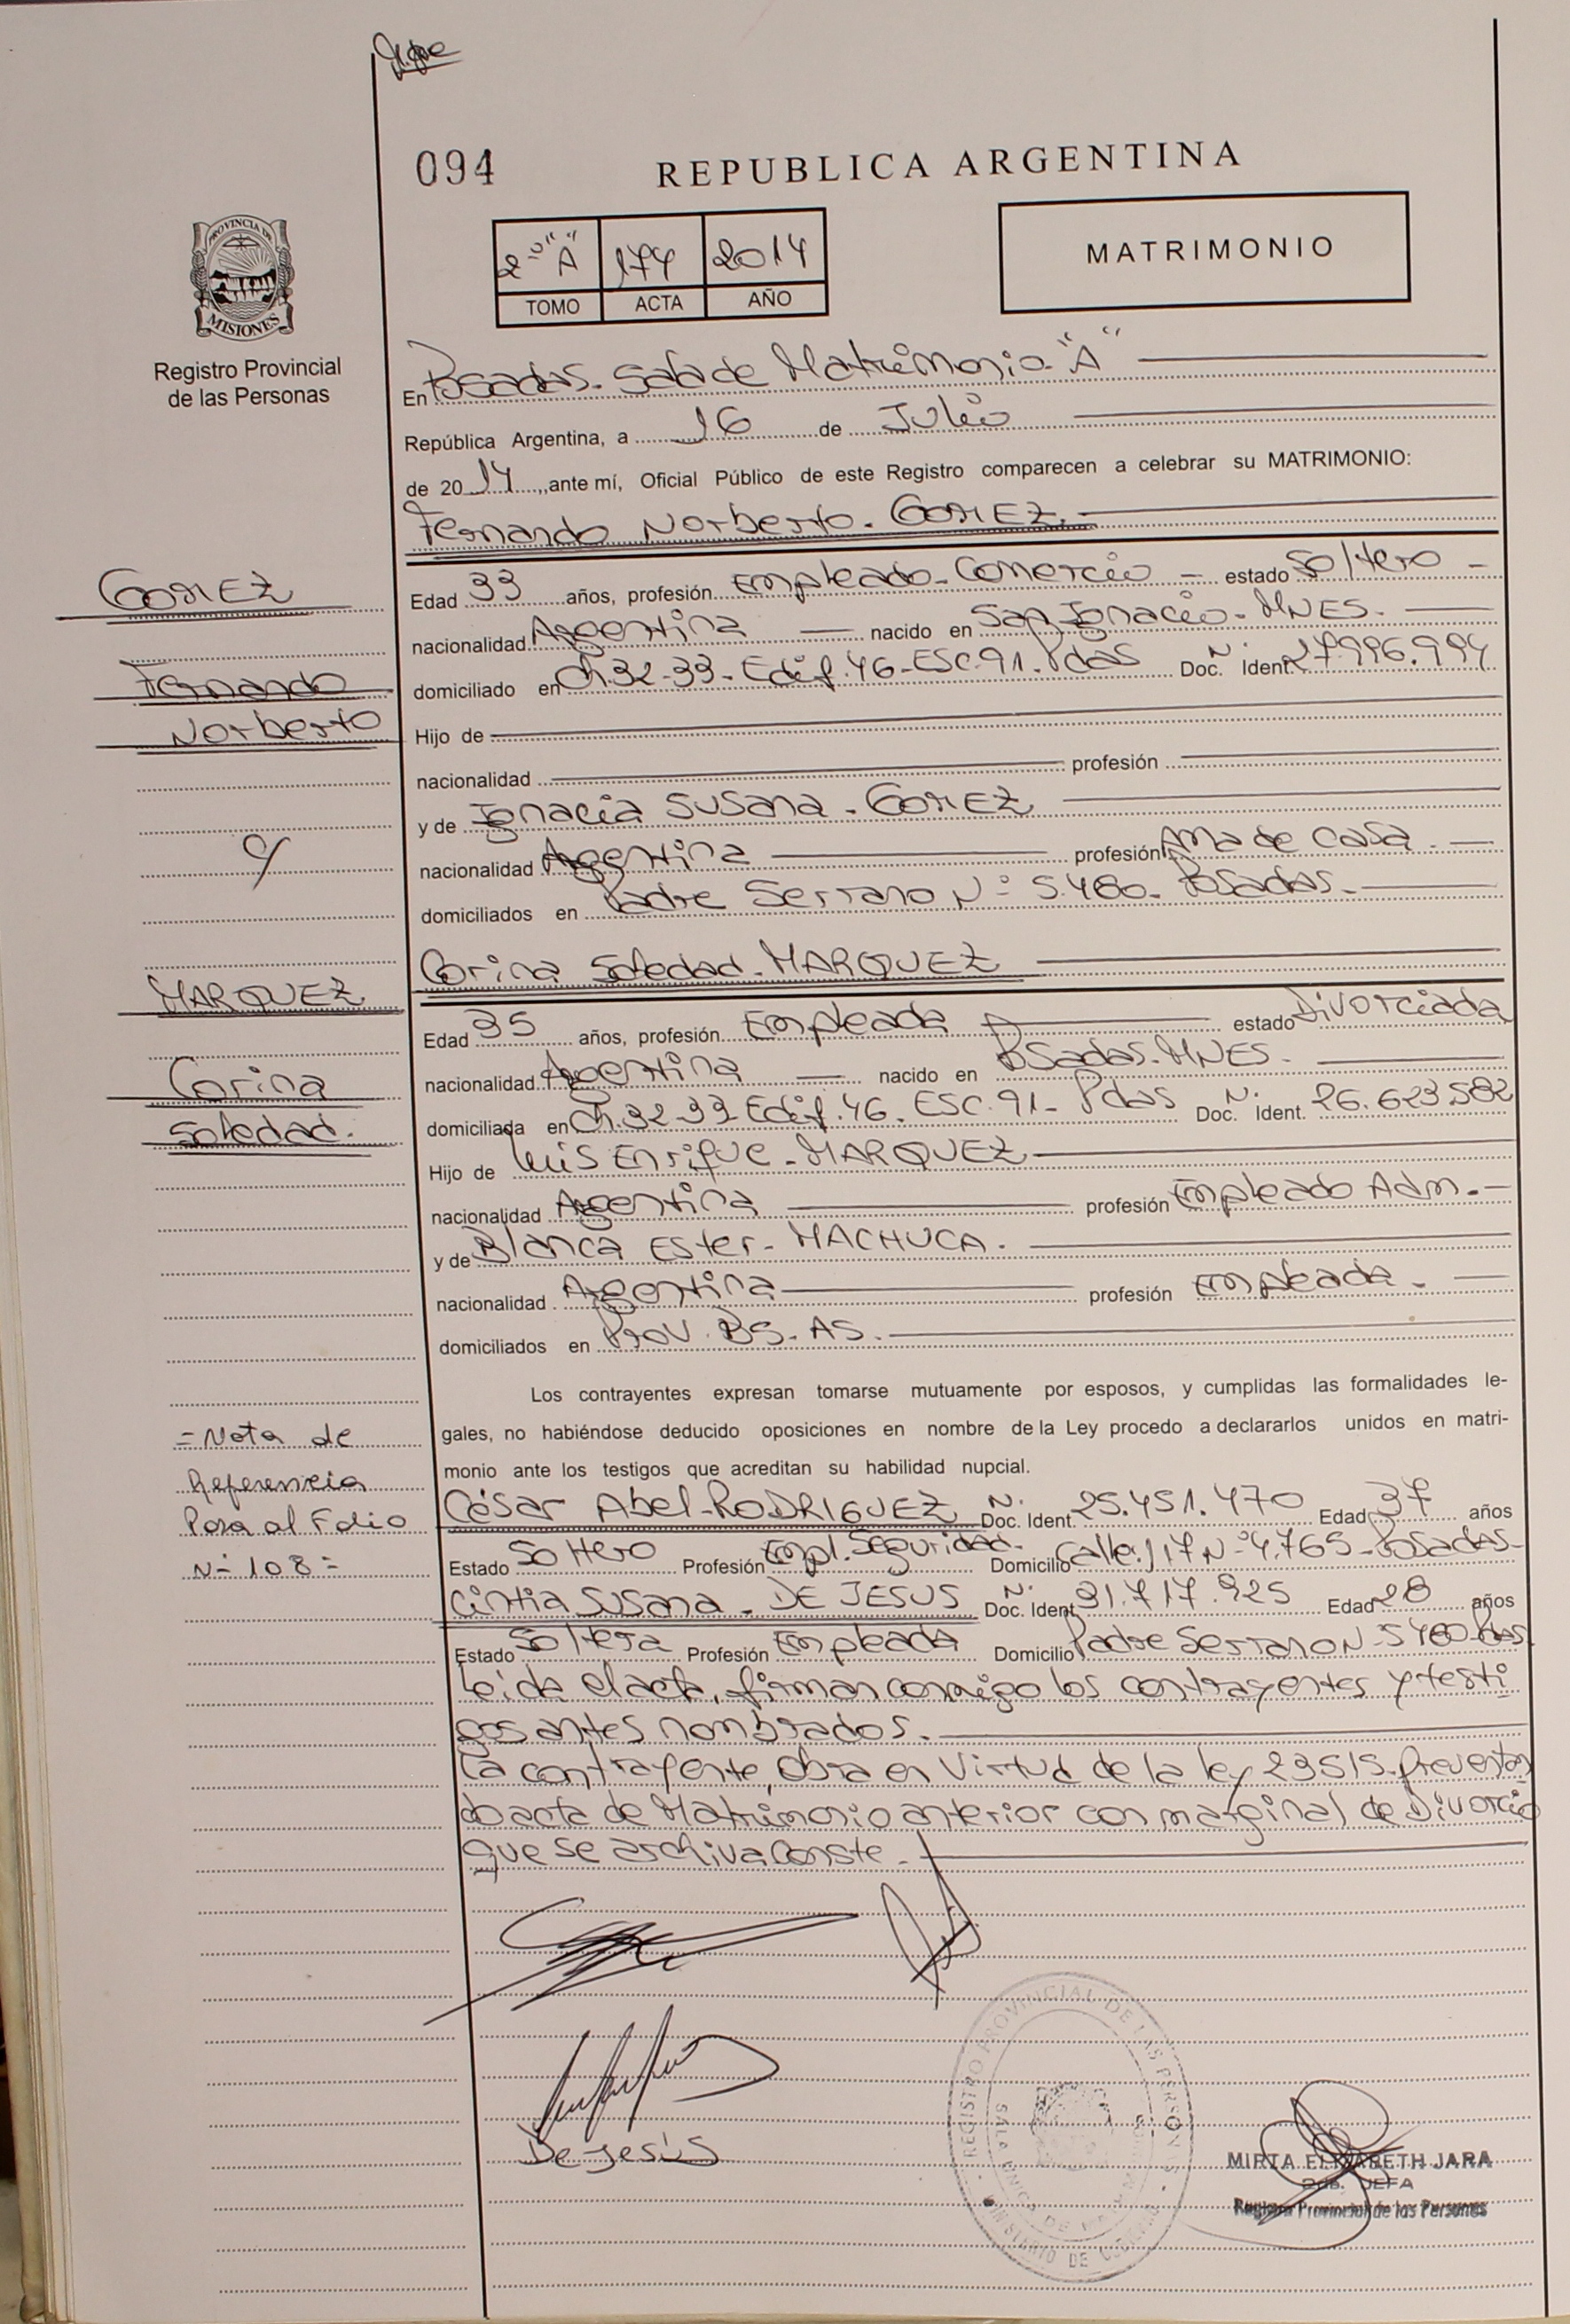 094
REPUBLICA ARGENTINA
PROVINCIA DE
MISIONES
Registro Provincial
de las Personas
2º "A" 174 2014
TOMO ACTA AÑO
MATRIMONIO
En Posadas. Sala de Matrimonio "A"
República Argentina, a 16 de Julio
de 2014, ante mí, Oficial Público de este Registro comparecen a celebrar su MATRIMONIO:
Fernando Norberto. GOMEZ.
GOMEZ
Fernando
Norberto
Edad 33 años, profesión Empleado Comercio estado Soltero
nacionalidad Argentina nacido en San Ignacio. MNES.
domiciliado en Ch. 32-33. Edif. 46. ESC. 91. Pdas Doc. Nº Ident. 27.996.994
Hijo de
nacionalidad profesión
y de Ignacia Susana. GOMEZ
nacionalidad Argentina profesión Ama de Casa.
domiciliados en Padre Serrano Nº 5.480. Posadas.
c/
Corina Soledad. MARQUEZ
MARQUEZ
Corina
Soledad.
Edad 35 años, profesión Empleada estado Divorciada
nacionalidad Argentina nacido en Posadas. MNES.
domiciliada en Ch. 32-33 Edif. 46. ESC. 91. Pdas Doc. Nº Ident. 26.623.582
Hijo de Luis Enrique. MARQUEZ
nacionalidad Argentina profesión Empleado Adm.
y de Blanca Ester. MACHUCA.
nacionalidad Argentina profesión Empleada.
domiciliados en Prov. Bs. As.
Los contrayentes expresan tomarse mutuamente por esposos, y cumplidas las formalidades le-
gales, no habiéndose deducido oposiciones en nombre de la Ley procedo a declararlos unidos en matri-
monio ante los testigos que acreditan su habilidad nupcial.
= Nota de
Referencia
Pasa al Folio
Nº 108 =
César Abel. RODRIGUEZ Doc. Nº Ident. 25.451.470 Edad 37 años
Estado Soltero Profesión Empl. Seguridad. Domicilio Calle 117 Nº 4.765. Posadas.
Cintia Susana. DE JESUS Doc. Nº Ident. 31.717.925 Edad 28 años
Estado Soltera Profesión Empleada Domicilio Padre Serrano Nº 5480 Pdas.
Leida el acta, firman conmigo los contrayentes y testi
gos antes nombrados.
La contrayente, obra en Virtud de la ley 23515. presentan
do acta de Matrimonio anterior con marginal de Divorcio
que se archiva Conste.
De Jesús
REGISTRO PROVINCIAL DE LAS PERSONAS
MINISTERIO DE GOBIERNO
MIRTA ELIZABETH JARA
2da. JEFA
Registro Provincial de las Personas